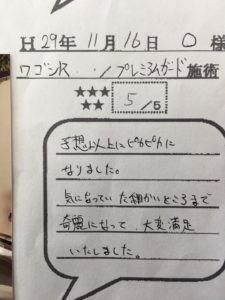 H29年 11月 16日 O 様
ワゴンR ・・/プレミアムガード 施術
★★★
★★
5/5
予想以上にピカピカに
なりました。
気になっていた細かいところまで
綺麗になって、大変満足
いたしました。